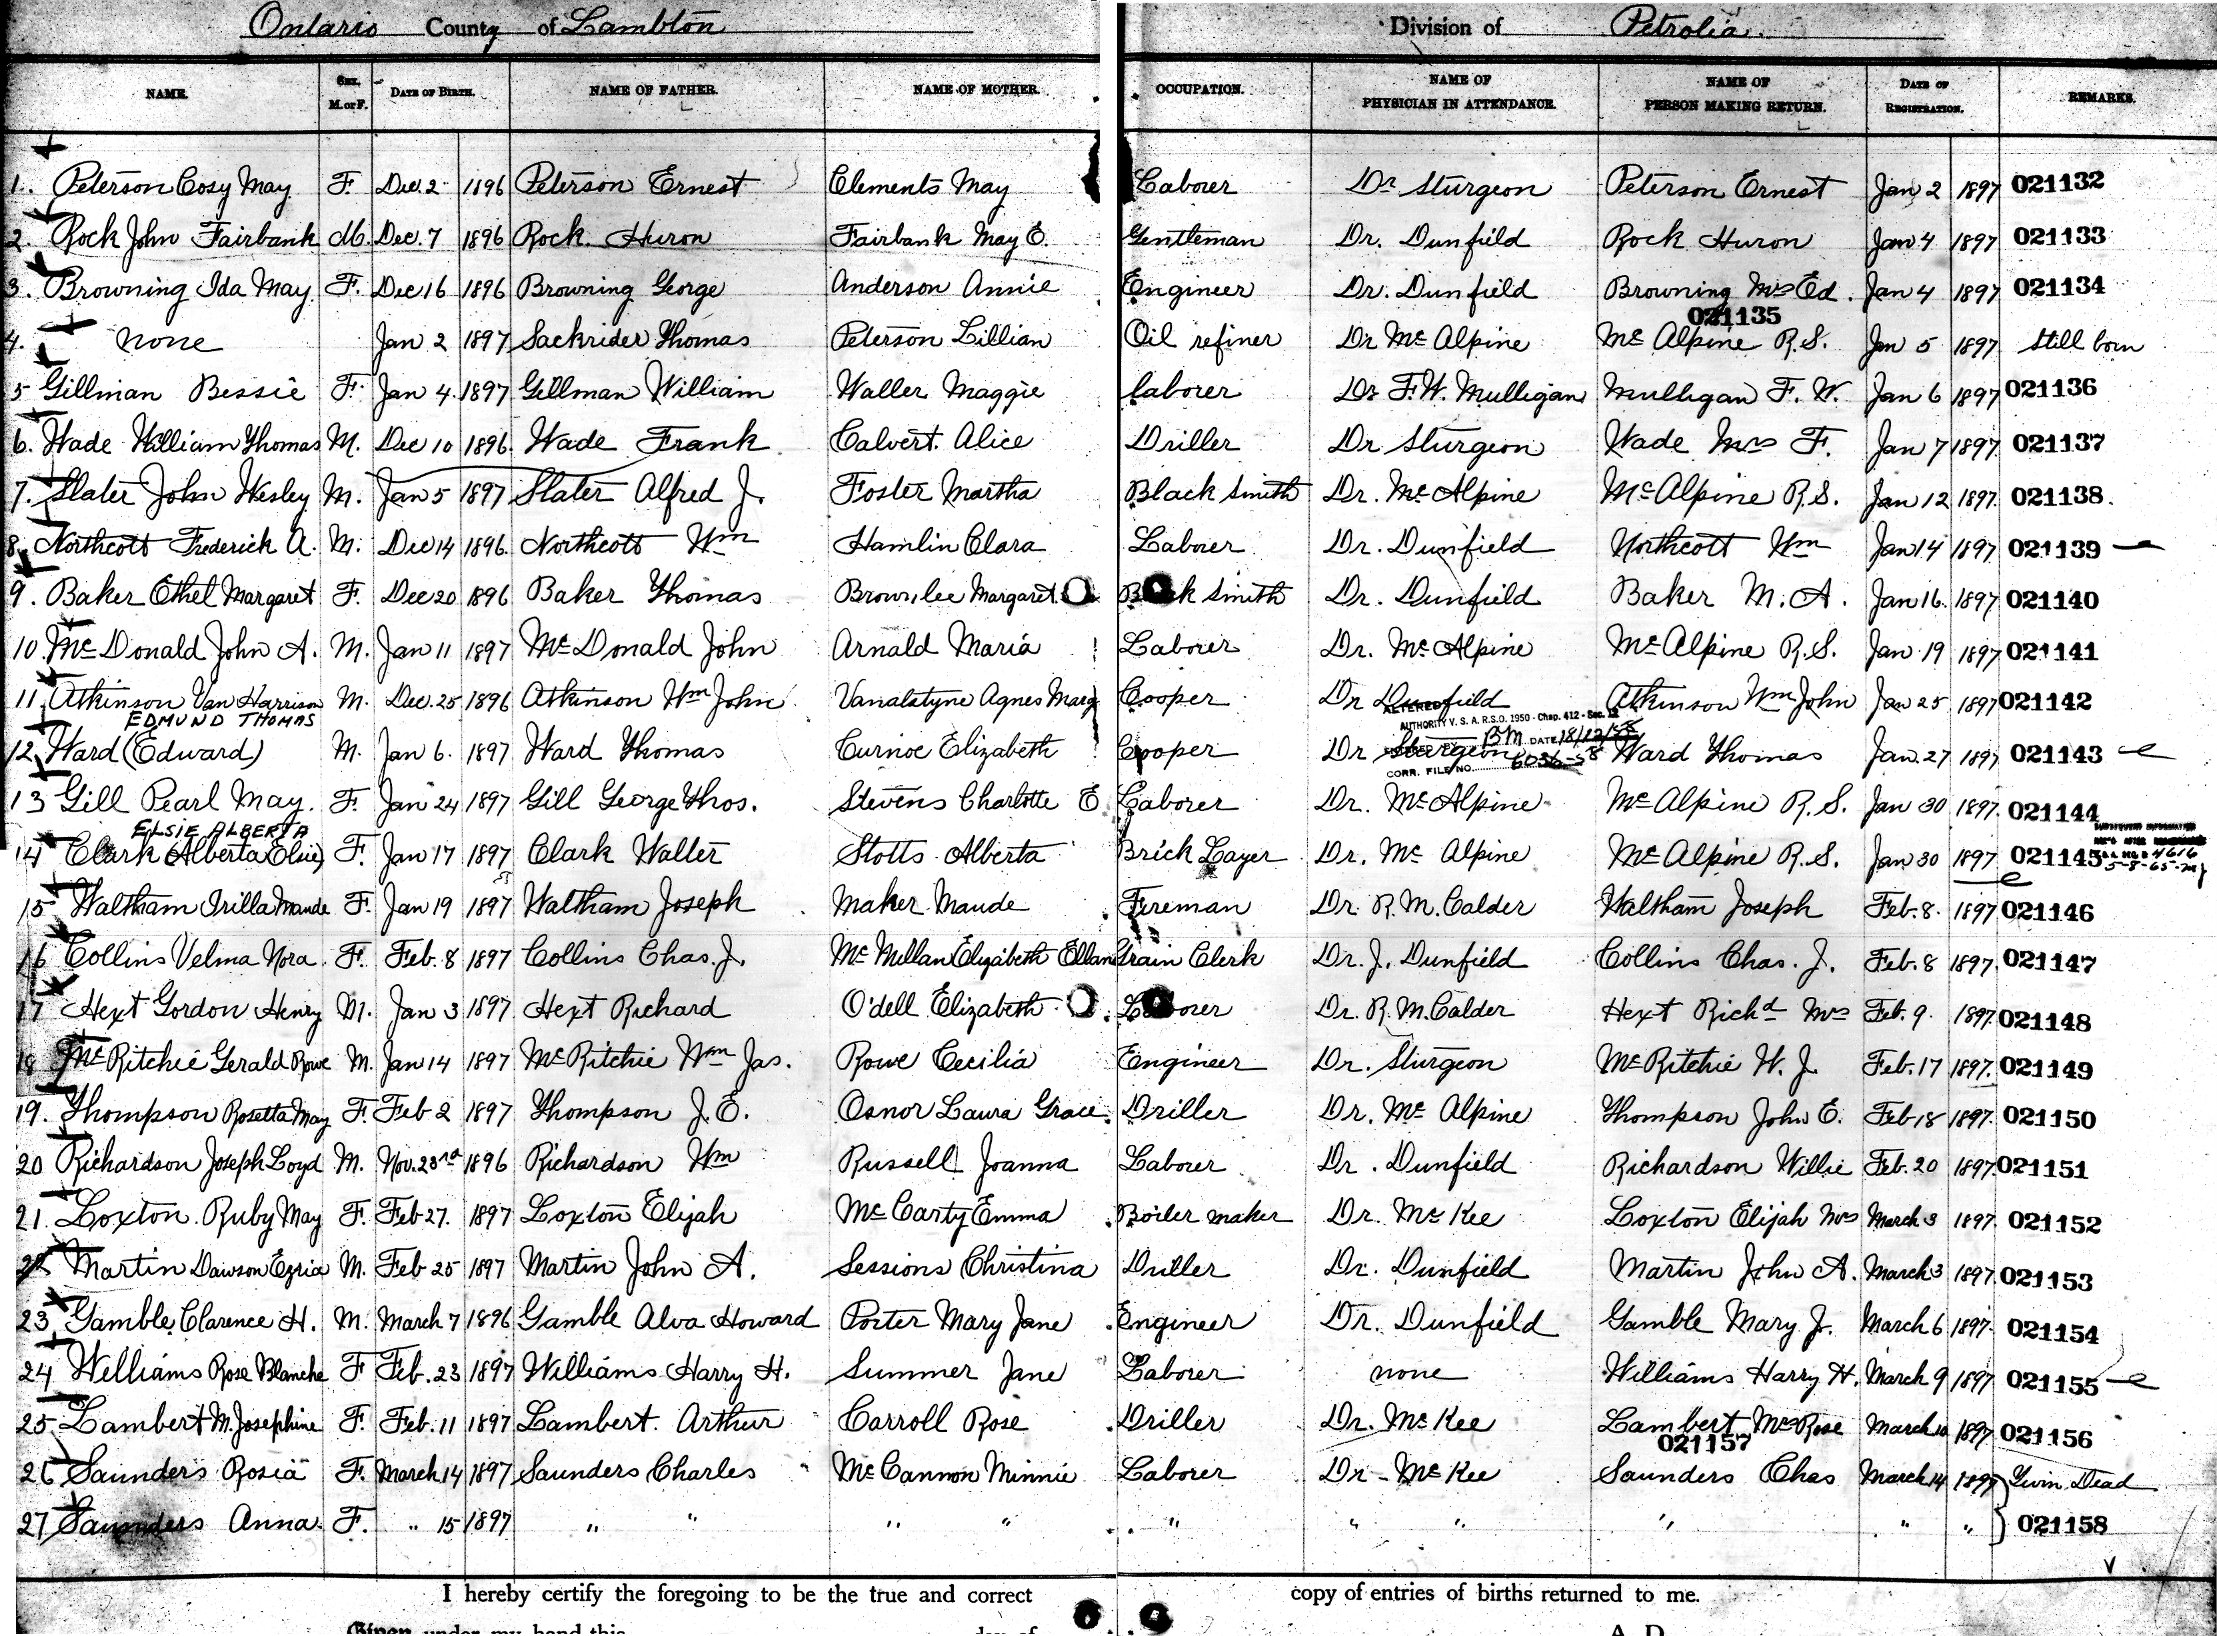 Ontario County of Lambton Division of Petrolia.
NAME. SEX. M. or F. DATE OF BIRTH. NAME OF FATHER. NAME OF MOTHER. OCCUPATION. NAME OF PHYSICIAN IN ATTENDANCE. NAME OF PERSON MAKING RETURN. DATE OF REGISTRATION. REMARKS.
1. Peterson Cosy May F. Dec. 2 1896 Peterson Ernest Clements May Laborer Dr Sturgeon Peterson Ernest Jan 2 1897 021132
2. Rock John Fairbank M. Dec. 7 1896 Rock Huron Fairbank May E. Gentleman Dr. Dunfield Rock Huron Jan 4 1897 021133
3. Browning Ida May F. Dec 16 1896 Browning George Anderson Annie Engineer Dr. Dunfield Browning Mrs Ed. Jan 4 1897 021134
021135
4. none Jan 2 1897 Sackrider Thomas Peterson Lillian Oil refiner Dr McAlpine McAlpine R.S. Jan 5 1897 Still born
5 Gillman Bessie F. Jan 4. 1897 Gillman William Waller Maggie laborer Dr F.W. Mulligan Mulligan F. W. Jan 6 1897 021136
6. Wade William Thomas M. Dec 10 1896. Wade Frank Calvert. Alice Driller Dr Sturgeon Wade Mrs F. Jan 7 1897 021137
7. Slater John Wesley M. Jan 5 1897 Slater Alfred J. Foster Martha Black Smith Dr. McAlpine McAlpine R.S. Jan 12 1897. 021138.
8. Northcott Frederick A. M. Dec 14 1896. Northcott Wm Hamlin Clara Laborer Dr. Dunfield Northcott Wm Jan 14 1897. 021139
9. Baker Ethel Margaret F. Dec 20 1896 Baker Thomas Brownlee Margaret B k Smith Dr. Dunfield Baker M. A. Jan 16. 1897 021140
10. McDonald John A. M. Jan 11 1897 McDonald John Arnald Maria Laborer Dr. McAlpine McAlpine R.S. Jan 19 1897 021141
11. Atkinson Van Harrison M. Dec. 25 1896 Atkinson Wm John Vanalstyne Agnes Marg Cooper Dr Dunfield Atkinson Wm John Jan 25 1897 021142
EDMUND THOMAS ALTERED AUTHORITY V. S. A. R.S.O. 1950 - Chap. 412 - Sec. 12
BM DATE 18/12/58
12. Ward (Edward) M. Jan 6. 1897 Ward Thomas Curnoe Elizabeth Cooper Dr Sturgeon Ward Thomas Jan. 27 1897 021143
CORR. FILE NO. 6036-58
13 Gill Pearl May. F. Jan 24 1897 Gill George Thos. Stevens Charlotte E Laborer Dr. McAlpine McAlpine R.S. Jan 30 1897. 021144
ELSIE ALBERTA
14 Clark (Alberta Elsie) F. Jan 17 1897 Clark Walter Stotts Alberta Brick Layer Dr. McAlpine McAlpine R.S. Jan 30 1897 021145
15 Waltham Irilla Maude F. Jan 19 1897 Waltham Joseph Maker Maude Fireman Dr. R. M. Calder Waltham Joseph Feb. 8. 1897 021146
16 Collins Velma Nora. F. Feb. 8 1897 Collins Chas. J. McMellan Elizabeth Ellan Grain Clerk Dr. J. Dunfield Collins Chas. J. Feb. 8 1897. 021147
17 Hext Gordon Henry M. Jan 3 1897 Hext Richard O'dell Elizabeth L borer Dr. R. M. Calder Hext Richd Mrs Feb. 9. 1897. 021148
18 McRitchie Gerald Rowe M. Jan 14 1897 McRitchie Wm Jas. Rowe Cecilia Engineer Dr. Sturgeon McRitchie W. J. Feb. 17 1897. 021149
19. Thompson Rosetta May F. Feb 2 1897 Thompson J. E. Osnor Laura Grace Driller Dr. McAlpine Thompson John E. Feb 18 1897. 021150
20 Richardson Joseph Loyd M. Nov. 23rd 1896 Richardson Wm Russell Joanna Laborer Dr. Dunfield Richardson Willie Feb. 20 1897 021151
21. Loxton Ruby May F. Feb 27. 1897 Loxton Elijah McCarty Emma Boiler maker Dr. McKee Loxton Elijah Mrs March 3 1897. 021152
22 Martin Dawson Ezria M. Feb 25 1897 Martin John A. Sessions Christina Driller Dr. Dunfield Martin John A. March 3 1897. 021153
23 Gamble Clarence H. M. March 7 1896 Gamble Alva Howard Porter Mary Jane Engineer Dr. Dunfield Gamble Mary J. March 6 1897. 021154
24 Williams Rose Blanche F Feb. 23 1897 Williams Harry H. Summer Jane Laborer none Williams Harry H. March 9 1897 021155
25 Lambert M. Josephine F. Feb. 11 1897 Lambert. Arthur Carroll Rose Driller Dr. McKee Lambert Mrs Rose March 10 1897 021156
021157
26 Saunders Rosia F. March 14 1897 Saunders Charles McCannon Minnie Laborer Dr - McKee Saunders Chas March 14 1897 Twin Dead
27 Saunders Anna. F. " 15 1897 " " " " " " " " " " 021158
I hereby certify the foregoing to be the true and correct copy of entries of births returned to me.
Given under my hand this day of A. D.